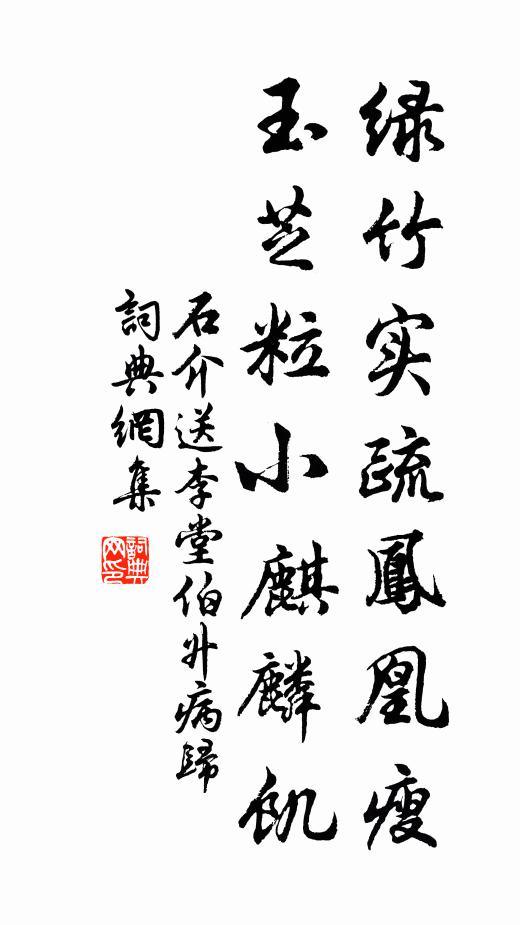 绿竹实疏鳳凰瘦
玉芝粒小麒麟飢
石介送李堂伯升病歸
詞典網集
詞典网印